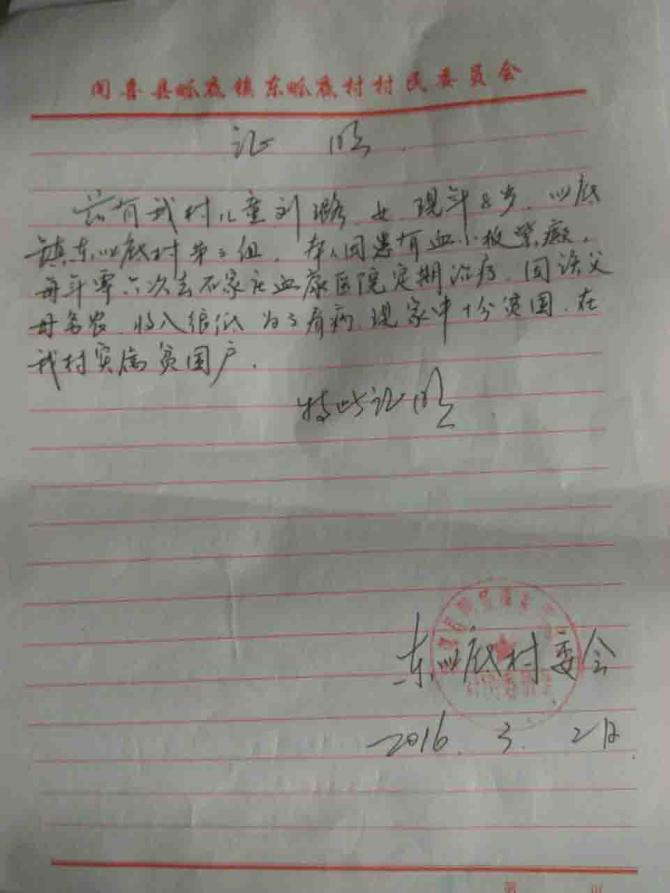 闻喜县畖底镇东畖底村村民委员会
证 明
兹有我村儿童刘璐 女 现年8岁. 凹底
镇东凹底村第三组. 本人因患有血小板紫癜.
每年需六次去石家庄血康医院定期治疗. 因该父
母务农. 收入很低 为了看病 现家中十分贫困. 在
我村实属贫困户.
特此证明
东凹底村委会
2016. 3. 2日
第 页